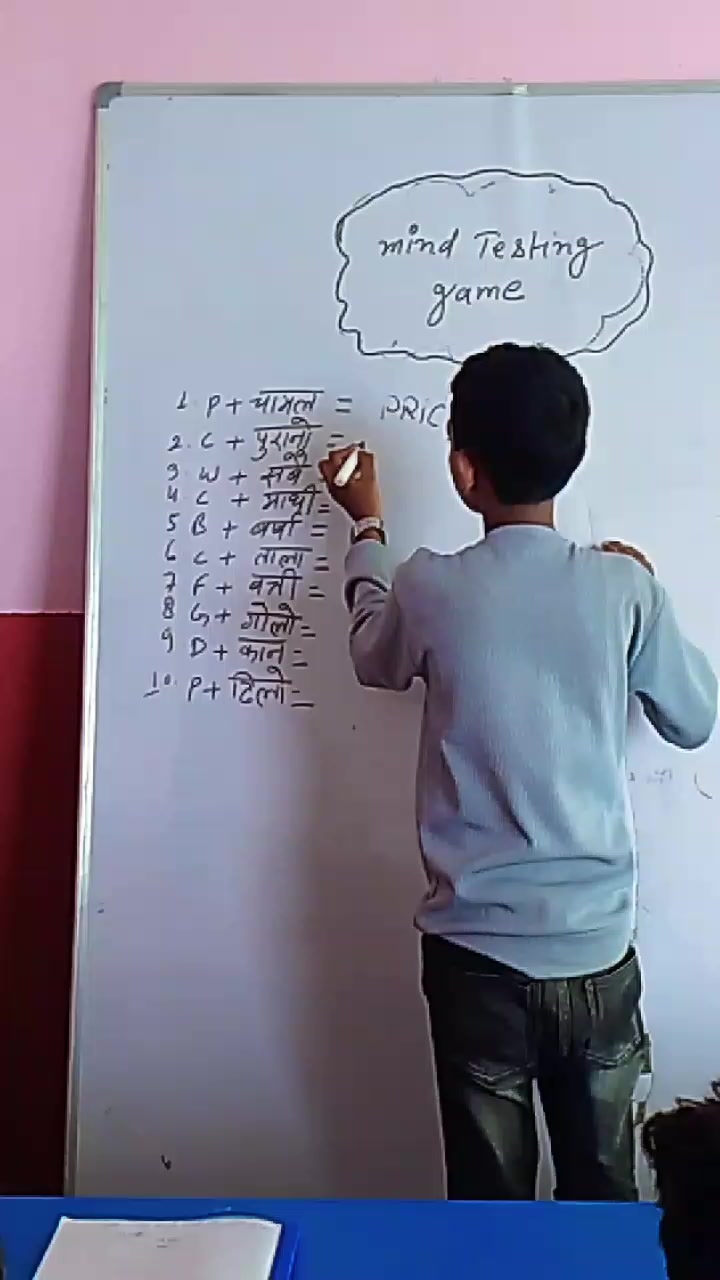 mind Testing
game
1. P + चामल = PRIC
2. C + पुरानो =
3. W + सबै =
4. C + माथी =
5 B + वर्षा =
6 C + ताला =
7 F + बत्ती =
8 G + गोलो =
9 D + कान =
10. P + ढिलो =